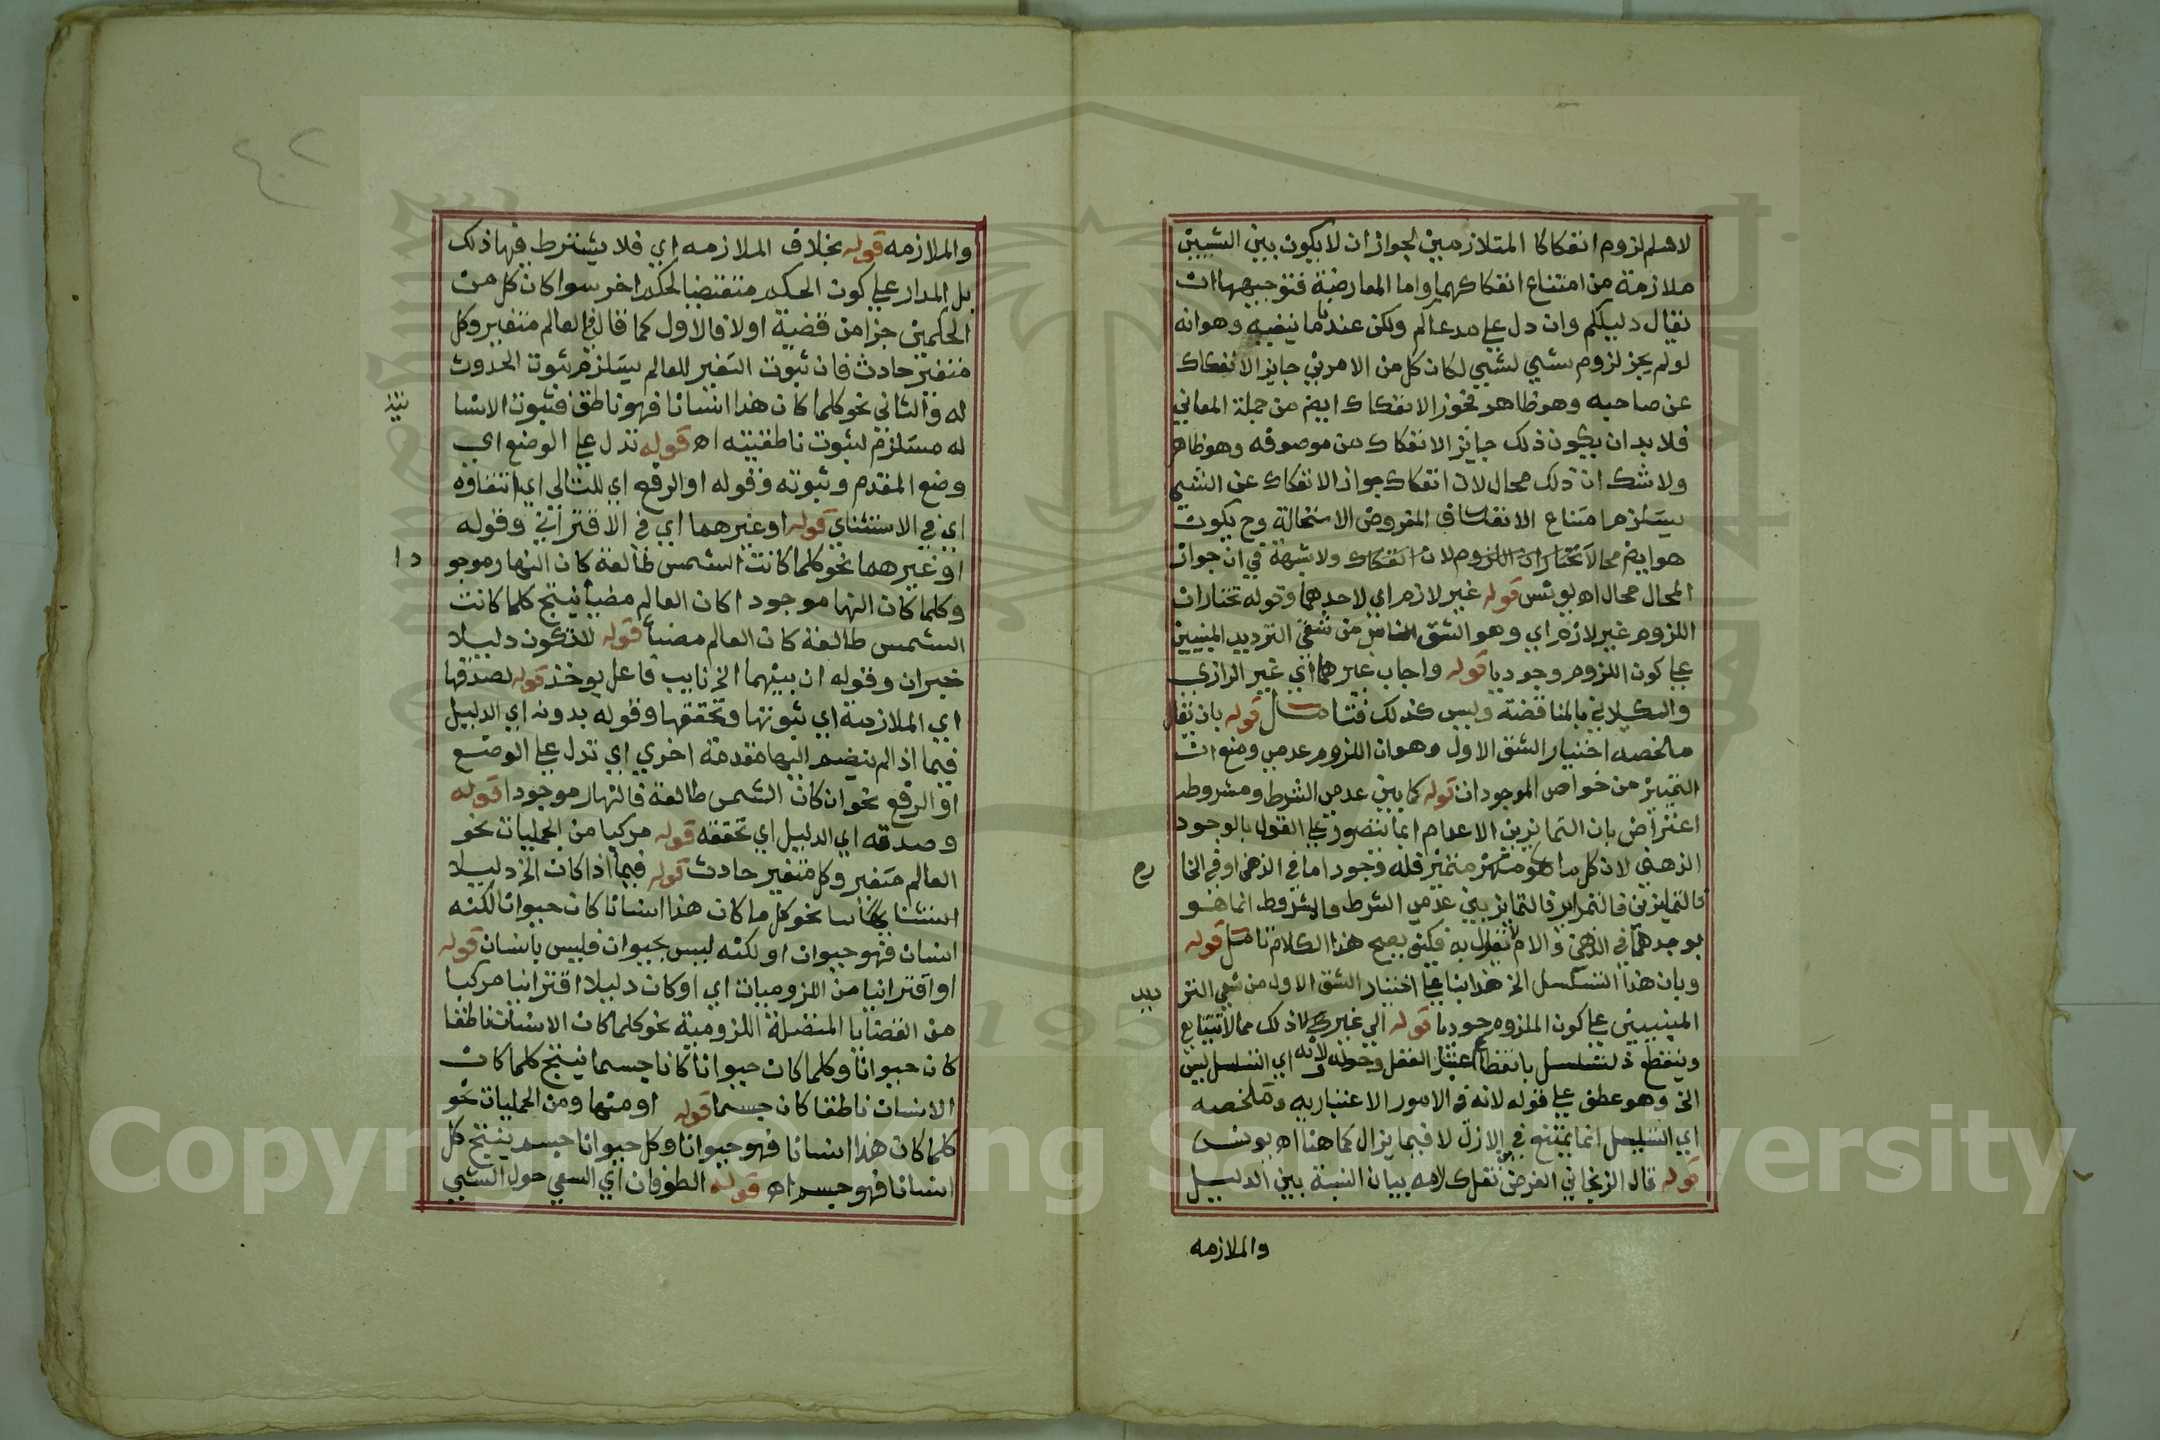 لا نسلم لزوم انفكاكا المتلازمين لجواز ان لا يكون بين الشيئين
ملازمة من امتناع انفكاكهما واما المعارضة فتوجيهها ان
يقال دليلكم وان دل على مدعاكم ولكن عندنا ما ينفيه وهو انه
لو لم يجز لزوم شي لشي لكان كل من الامرين جايز الانفكاك
عن صاحبه وهو ظاهر فجوز الانفكاك ايض من جملة المعاني
فلا بد ان يكون ذلك جايز الانفكاك من موصوفه وهو ظاهر
ولا شك ان ذلك محال لان انفكاك جواز الانفكاك عن الشي
يستلزم امتناع الانفكاك في المفروض الاستحالة وح يكون
هو ايض محالا تختار ان اللزوم لان انفكاك ولا شبهة في ان جواز
المحال محال اه يونس قوله غير لازم اي لاحدهما وقوله تختار ان
اللزوم غير لازم اي وهو الشق الثاني من شقي الترديد المبنيين
على كون اللزوم وجوديا قوله واجاب غيرهما اي غير الرازي
والكيلاني بالمناقضة وليس كذلك فتامل قوله بان نقل
ملخصه اختيار الشق الاول وهو ان اللزوم عدمي ومنع ان
التميز من خواص الموجودات قوله كما بين عدمي الشرط ومشروطه
اعترض بان التمايز بين الاعدام انما يتصور على القول بالوجود
الذهني لان كل ما هو متميز فله وجود اما في الذهن او في الخا
رج
فالتمايز بين عدمي الشرط والشروط انما هو
بوجدهما في الذهن والام لا نقول به فكيف يصح هذا الكلام تامل قوله
وبان هذا التسلسل الخ هذا بنا على اختيار الشق الاول من شقي التر
ديد
المبنيين على كون الملزوم وجوديا قوله الي غير ذلك مما لا يتناع
وينقطع ذلتسلسل بانقطاع اعتبار العقل وقوله لانه اي التسلسل ليس
الخ وهو عطف على قوله لانه في الامور الاعتباريه وملخصه
اي التسلسل انما يمتنع في الازل لا فيما يزال كما هنا اه يونس
قوله قال الزنجاني الغرض نقل كلامه بيان النسبة بين الدليل
والملازمه
٤٢
والملازمه قوله بخلاف الملازمه اي فلا يشترط فيها ذلك
بل المدار على كون الحكم متقتضيا لحكم اخر سوا كان كل من
الحكمين جزا من قضية اولا فالاول كما قال في العالم متغير وكل
متغير حادث فان ثبوت التغير للعالم يستلزم ثبوت الحدوث
له والثاني نحو كلما كان هذا انسانا فهو ناطق فثبوت الانسا
نية
له مستلزم لثبوت ناطقيته اه قوله تدل على الوضع اي
وضع المقدم وثبوته وقوله او الرفع اي للتالي اي انتفاوه
اي في الاستثناي قوله او غيرهما اي في الاقتراني وقوله
او غيرهما نحو كلما كانت الشمس طالعة كان النهار موجو
دا
وكلما كان النها موجودا كان العالم مضيا ينتج كلما كانت
الشمس طالعة كان العالم مضيا قوله للتكون دليلا
خبران وقوله ان بينهما الخ نايب فاعل يوخذ قوله لصدقها
اي الملازمة اي ثبوتها وتحققها وقوله بدونه اي الدليل
فيما اذا لم ينضم اليها مقدمة اخري اي تدل على الوضع
او الرفع نحو ان كان الشمس طالعة فالنهار موجودا قوله
وصدقه اي الدليل اي تحققه قوله مركبا من الحمليات نحو
العالم متغير وكل متغير حادث قوله فيما اذا كان الخ دليلا
استثنايا نحو كل ما كان هذا انسانا كان حيوانا لكنه
انسان فهو حيوان او لكنه ليس بحيوان فليس بانسان قوله
او اقترانيا من اللزوميات اي او كان دليلا اقترانيا مركبا
من القضايا المتصلة اللزومية نحو كلما كان الانسان ناطقا
كان حيوانا وكلما كان حيوانا كان جسما ينتج كلما كان
الانسان ناطقا كان جسما قوله او منها ومن الحمليات نحو
كلما كان هذا انسانا فهو حيوانا وكل حيوانا جسم ينتج كل
انسانا فهو جسم اه قوله الطوفان اي السعي حول الشي
Copyright © King Saud University